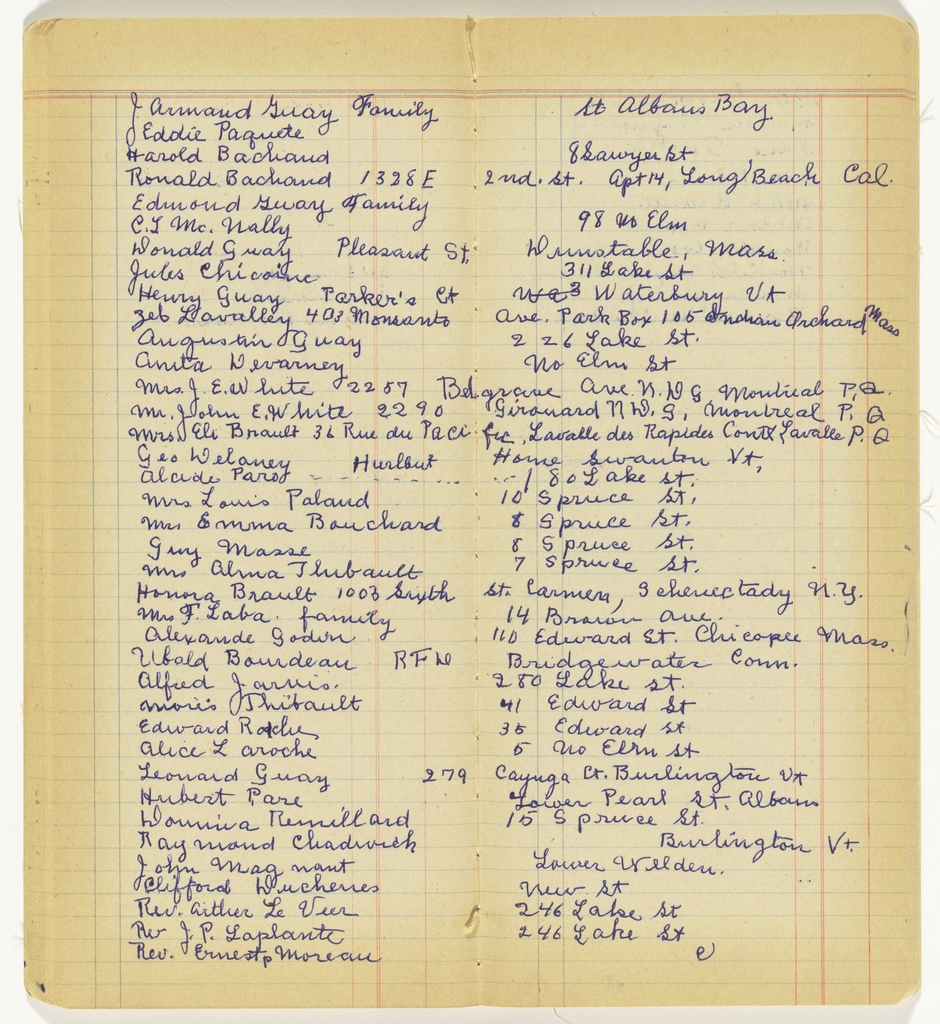 J Armand Guay Family St Albans Bay
Eddie Paquete
Harold Bachand 8 Sawyer St
Ronald Bachand 1328 E 2nd. St. Apt 14, Long Beach Cal.
Edmond Guay Family
C.L Mc. Nally 98 No Elm
Donald Guay Pleasant St, Dunstable, Mass.
Jules Chicoine 311 Lake St
Henry Guay Parker's Ct Waterbury Vt
Zeb Lavalley 403 Monsanto Ave. Park Box 105 Indian Orchard Mass
Augustin Guay 226 Lake St.
Anita Devarney No Elm St
Mrs. J. E. White 2257 Belgrave Ave. N. D G, Montreal P. Q.
Mr. John E. White 2290 Girouard N D. G, Montreal P. Q
Mrs. Eli Brault 36 Rue du Pacific, Lavalle des Rapides Conté Lavalle P. Q
Geo Delaney Hurlbut Home Swanton Vt,
Alcide Paros 180 Lake St.
Mrs. Louis Paland 10 Spruce St.
Mrs Emma Bouchard 8 Spruce St.
Guy Masse 8 Spruce St.
Mrs Alma Thibault 7 Spruce St.
Honora Brault 1003 Sixth St. Carmen, Schenectady N.Y.
Mrs F. Laba. family 14 Brown Ave.
Alexande Godin 110 Edward St. Chicopee Mass.
Ubald Bourdeau RFD Bridgewater Conn.
Alfred Jarvis. 280 Lake St.
Moris Thibault 41 Edward St
Edward Roche 35 Edward St
Alice Laroche 5 No Elm St
Leonard Guay 279 Cayuga Ct. Burlington Vt
Hubert Pare Lower Pearl St. Albans
Donniva Remillard 15 Spruce St.
Raymond Chadwick Burlington Vt.
John Magnant Lower Welden.
Clifford Duchenes New St
Rev. Arther Le Veer 246 Lake St
Rev J. P. Laplante 246 Lake St
Rev. Ernest P Moreau